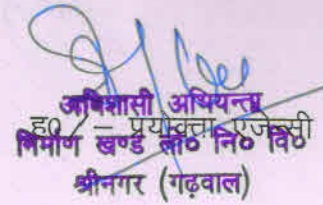 अधिशासी अभियन्ता
ह० / – प्रयोक्ता एजेन्सी
निर्माण खण्ड लो० नि० वि०
श्रीनगर (गढ़वाल)